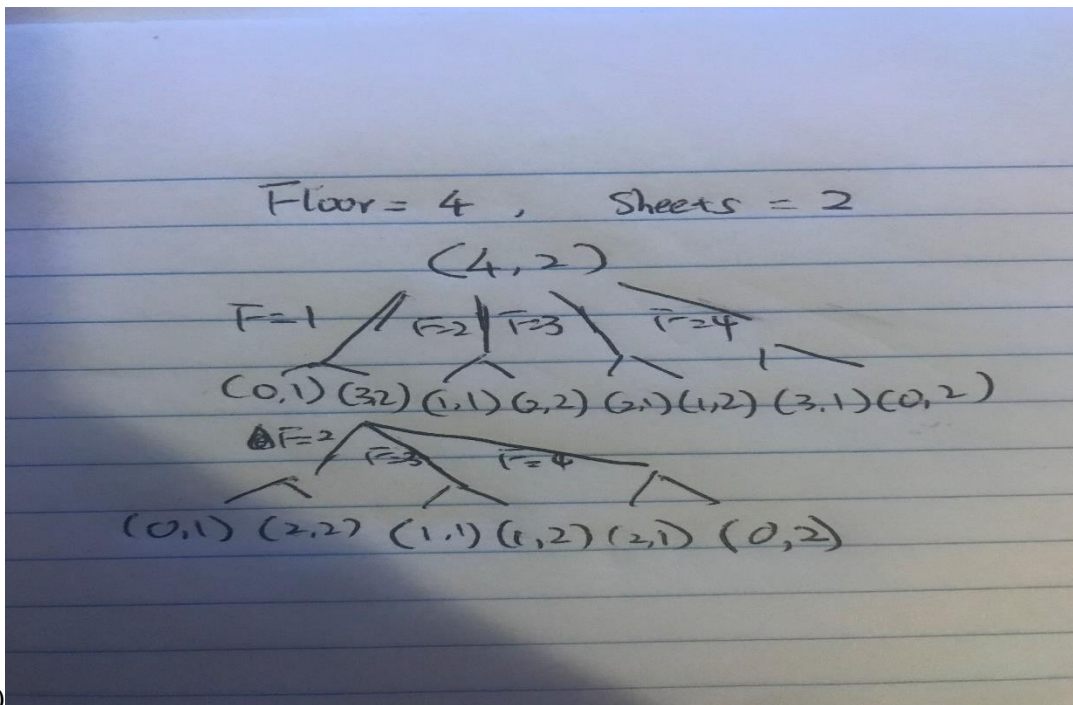 Floor = 4 , Sheets = 2
(4,2)
F=1 F=2 F=3 F=4
(0,1) (3,2) (1,1) (2,2) (2,1) (1,2) (3,1) (0,2)
F=2 F=3 F=4
(0,1) (2,2) (1,1) (1,2) (2,1) (0,2)
)